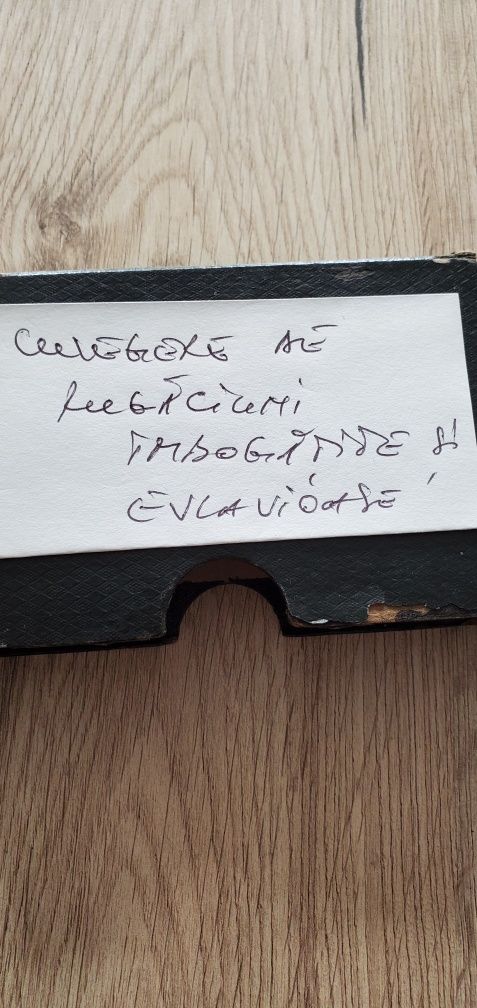 CULEGERE DE
RUGĂCIUNI
ÎMBOGĂȚITE ȘI
EVLAVIOASE